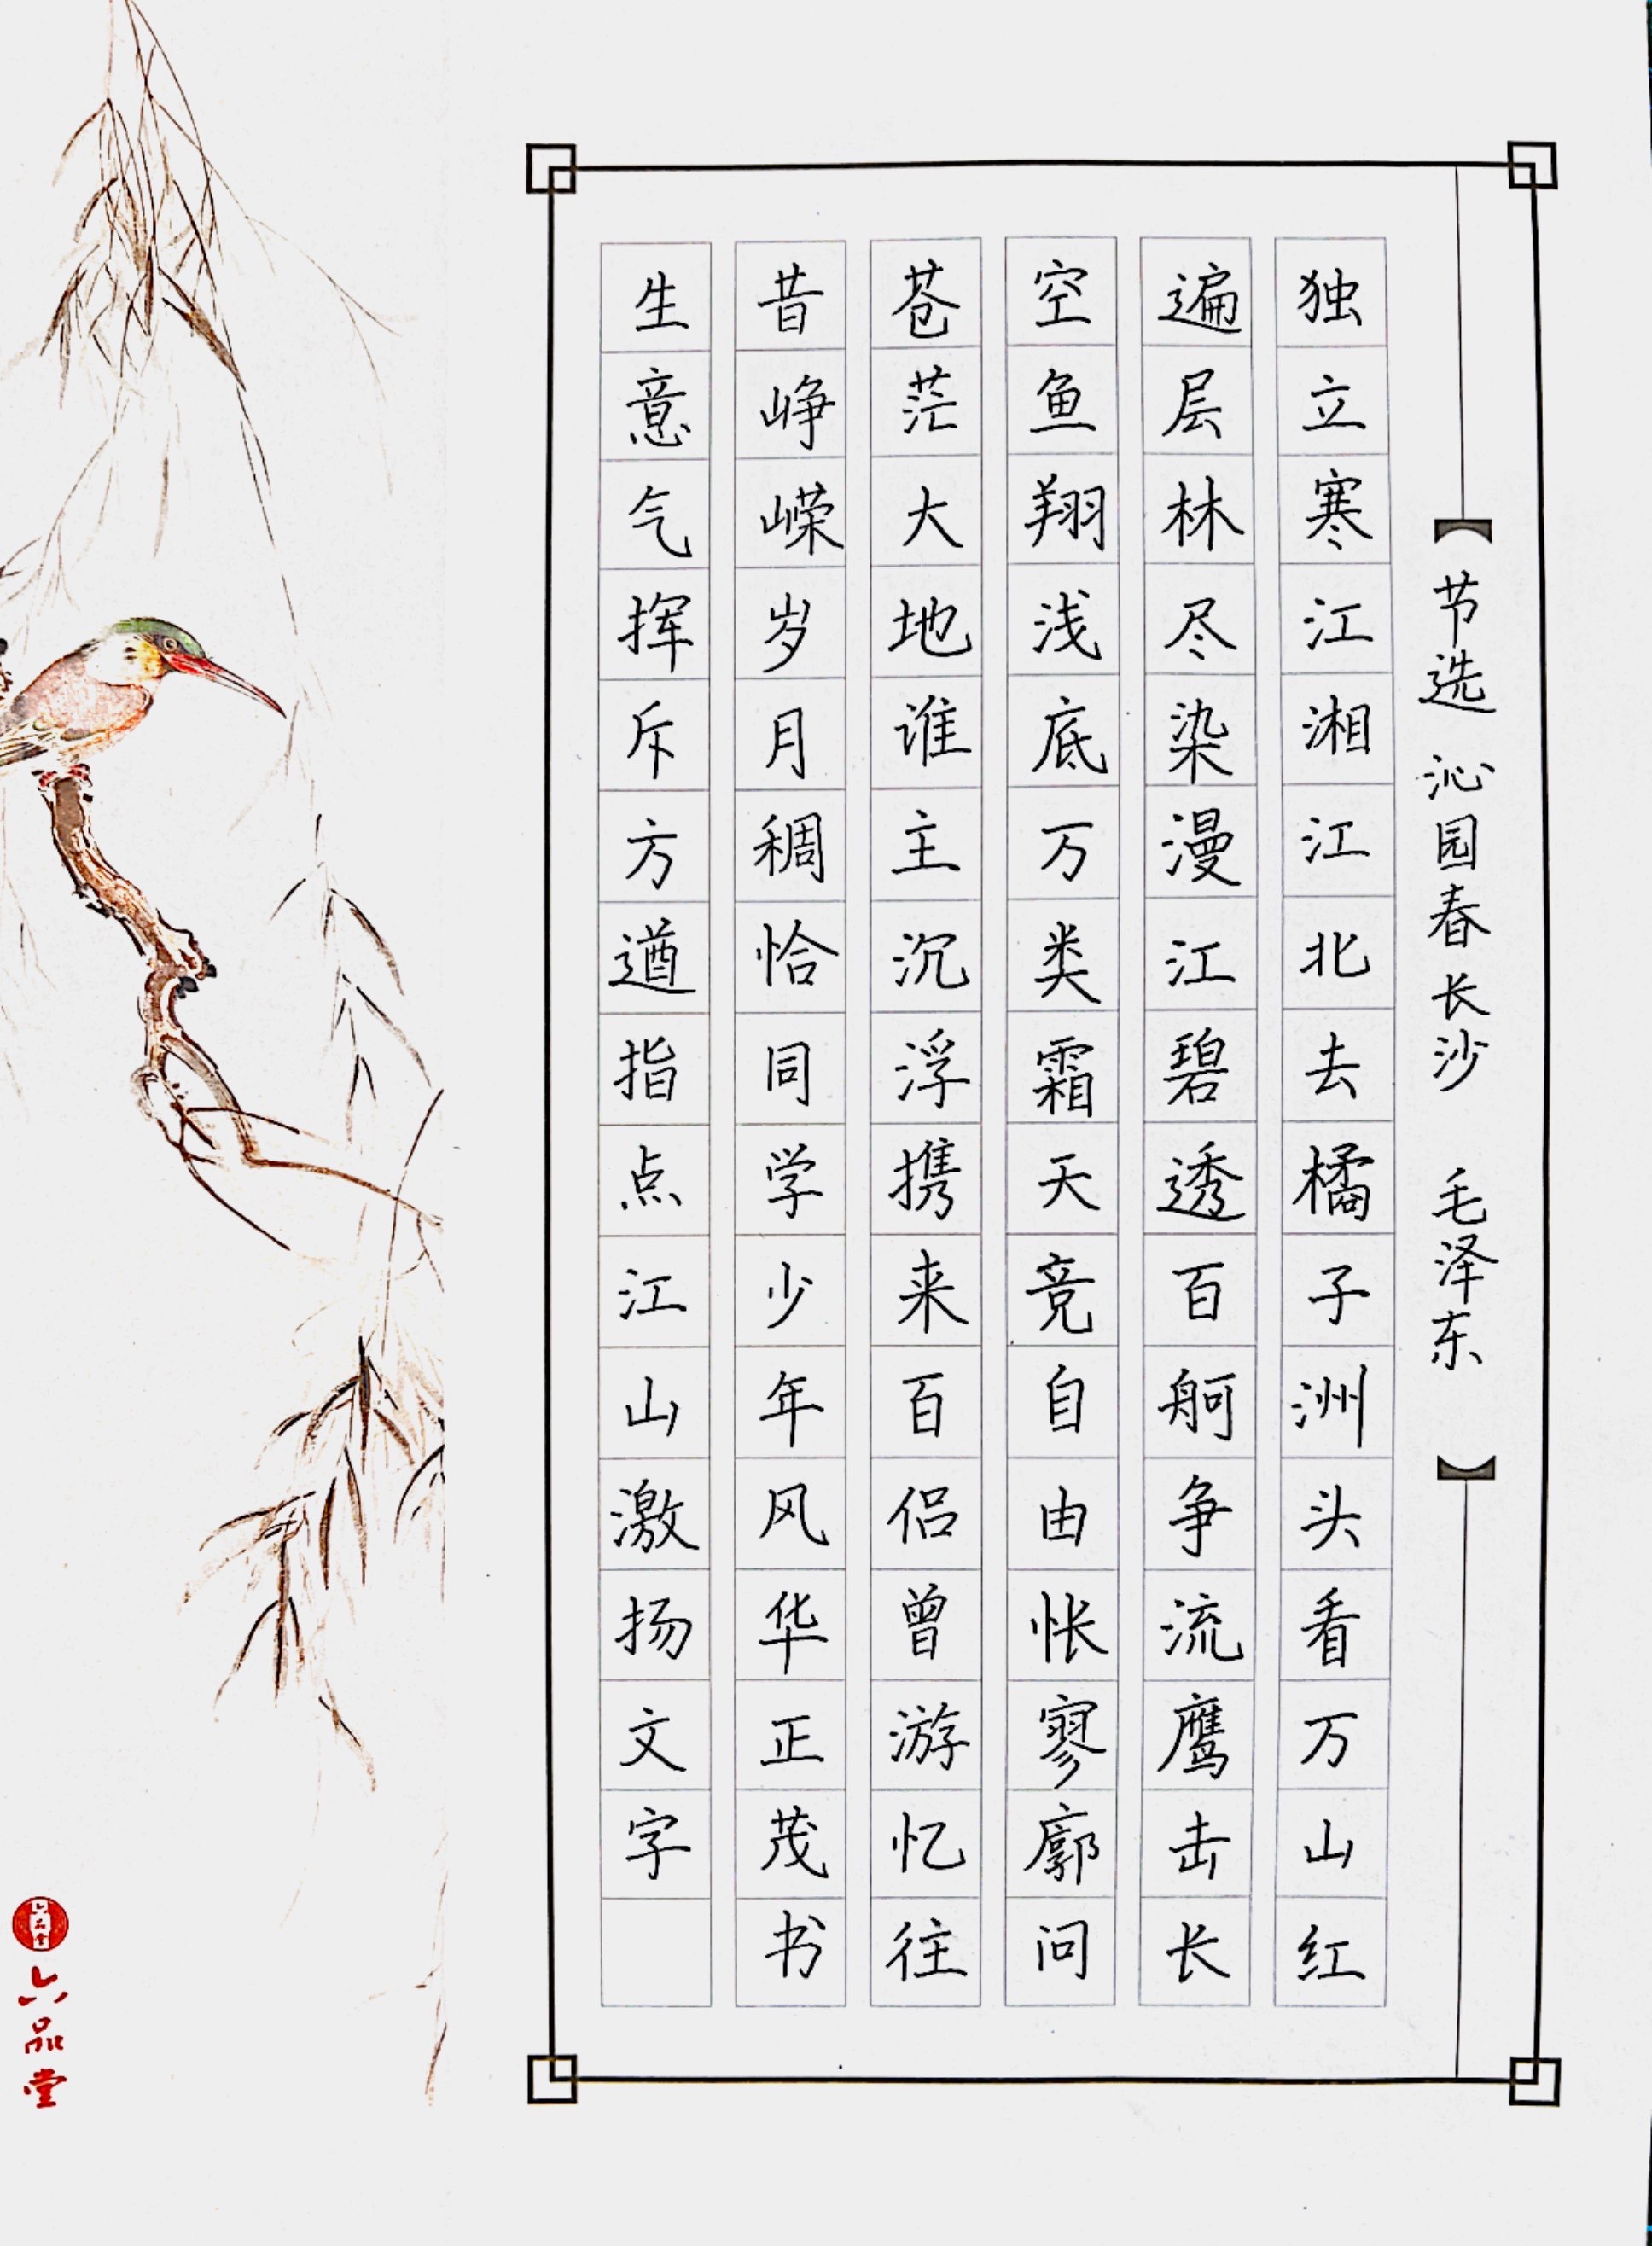 节选 沁园春长沙 毛泽东
独立寒江湘江北去橘子洲头看万山红
遍层林尽染漫江碧透百舸争流鹰击长
空鱼翔浅底万类霜天竞自由怅寥廓问
苍茫大地谁主沉浮携来百侣曾游忆往
昔峥嵘岁月稠恰同学少年风华正茂书
生意气挥斥方遒指点江山激扬文字
六品堂
六品堂